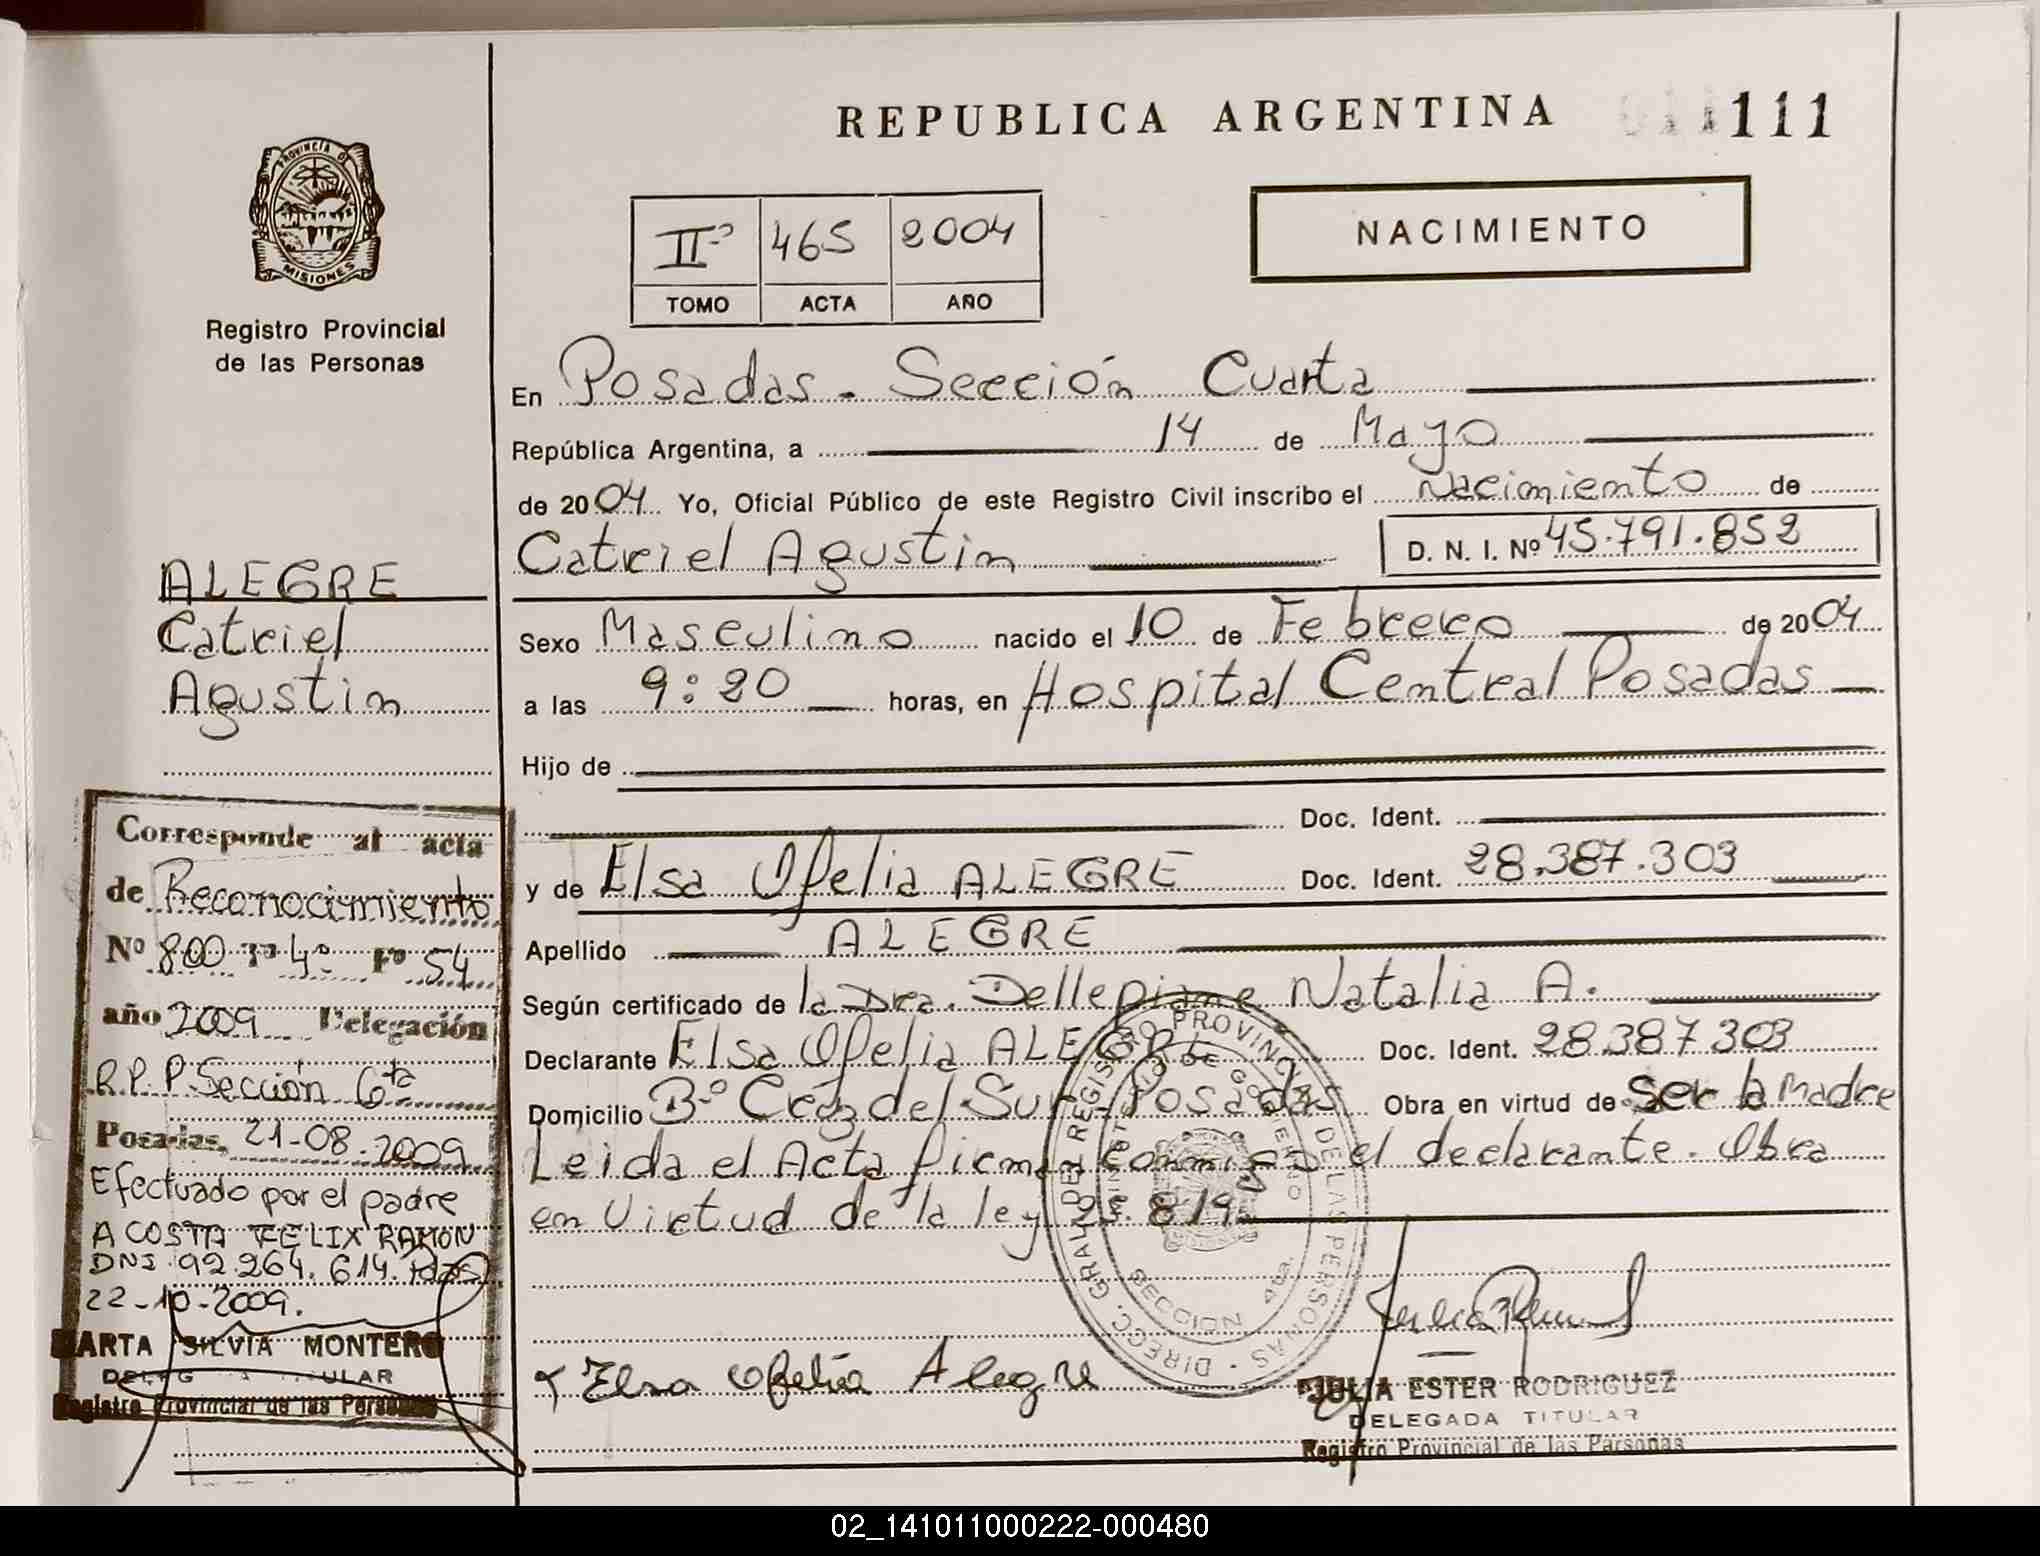 REPUBLICA ARGENTINA 111
PROVINCIA DE
MISIONES
Registro Provincial
de las Personas
IIº 465 2004
TOMO ACTA AÑO
NACIMIENTO
En Posadas - Sección Cuarta
República Argentina, a 14 de Mayo
de 2004 Yo, Oficial Público de este Registro Civil inscribo el Nacimiento de
Catriel Agustin D. N. I. Nº 45.791.852
Sexo Masculino nacido el 10 de Febrero de 2004
a las 9:20 horas, en Hospital Central Posadas
Hijo de
Doc. Ident.
y de Elsa Ofelia ALEGRE Doc. Ident. 28.387.303
Apellido ALEGRE
Según certificado de la Dra. Dellepiane Natalia A.
Declarante Elsa Ofelia ALEGRE Doc. Ident. 28.387.303
Domicilio Bº Cruz del Sur Posadas Obra en virtud de ser la Madre
Leida el Acta firma conmigo el declarante. Obra
en Virtud de la ley
ALEGRE
Catriel
Agustin
Corresponde al acta
de Reconocimiento
Nº 800 Tº 4º Fº 54
año 2009 Delegación
R.P.P. Sección 6ta
Posadas, 21-08-2009
Efectuado por el padre
ACOSTA FELIX RAMON
DNI 92.264.614. Pdas
22-10-2009.
MARTA SILVIA MONTERO
Registro Provincial de las Personas
DIRECC. GRAL. DEL REGISTRO PROVINCIAL DE LAS PERSONAS
MINISTERIO DE GOBIERNO
SECCION 4ta.
Elsa Ofelia Alegre
JULIA ESTER RODRIGUEZ
DELEGADA TITULAR
Registro Provincial de las Personas
02_141011000222-000480